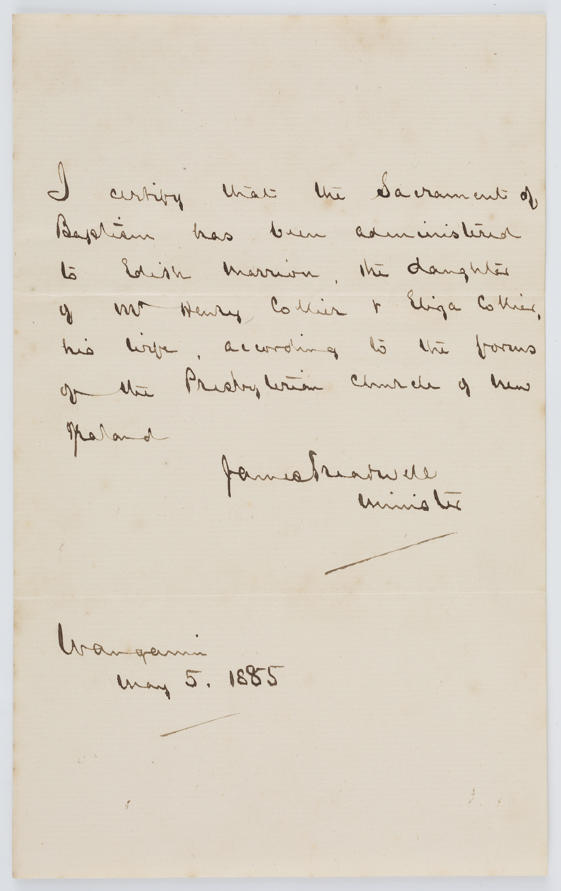 I certify that the Sacrament of
Baptism has been administered
to Edith Marrion, the daughter
of Mr Henry Collier & Eliza Collier,
his wife, according to the forms
of the Presbyterian Church of New
Zealand
James Treadwell
Minister
Wanganui
May 5. 1885